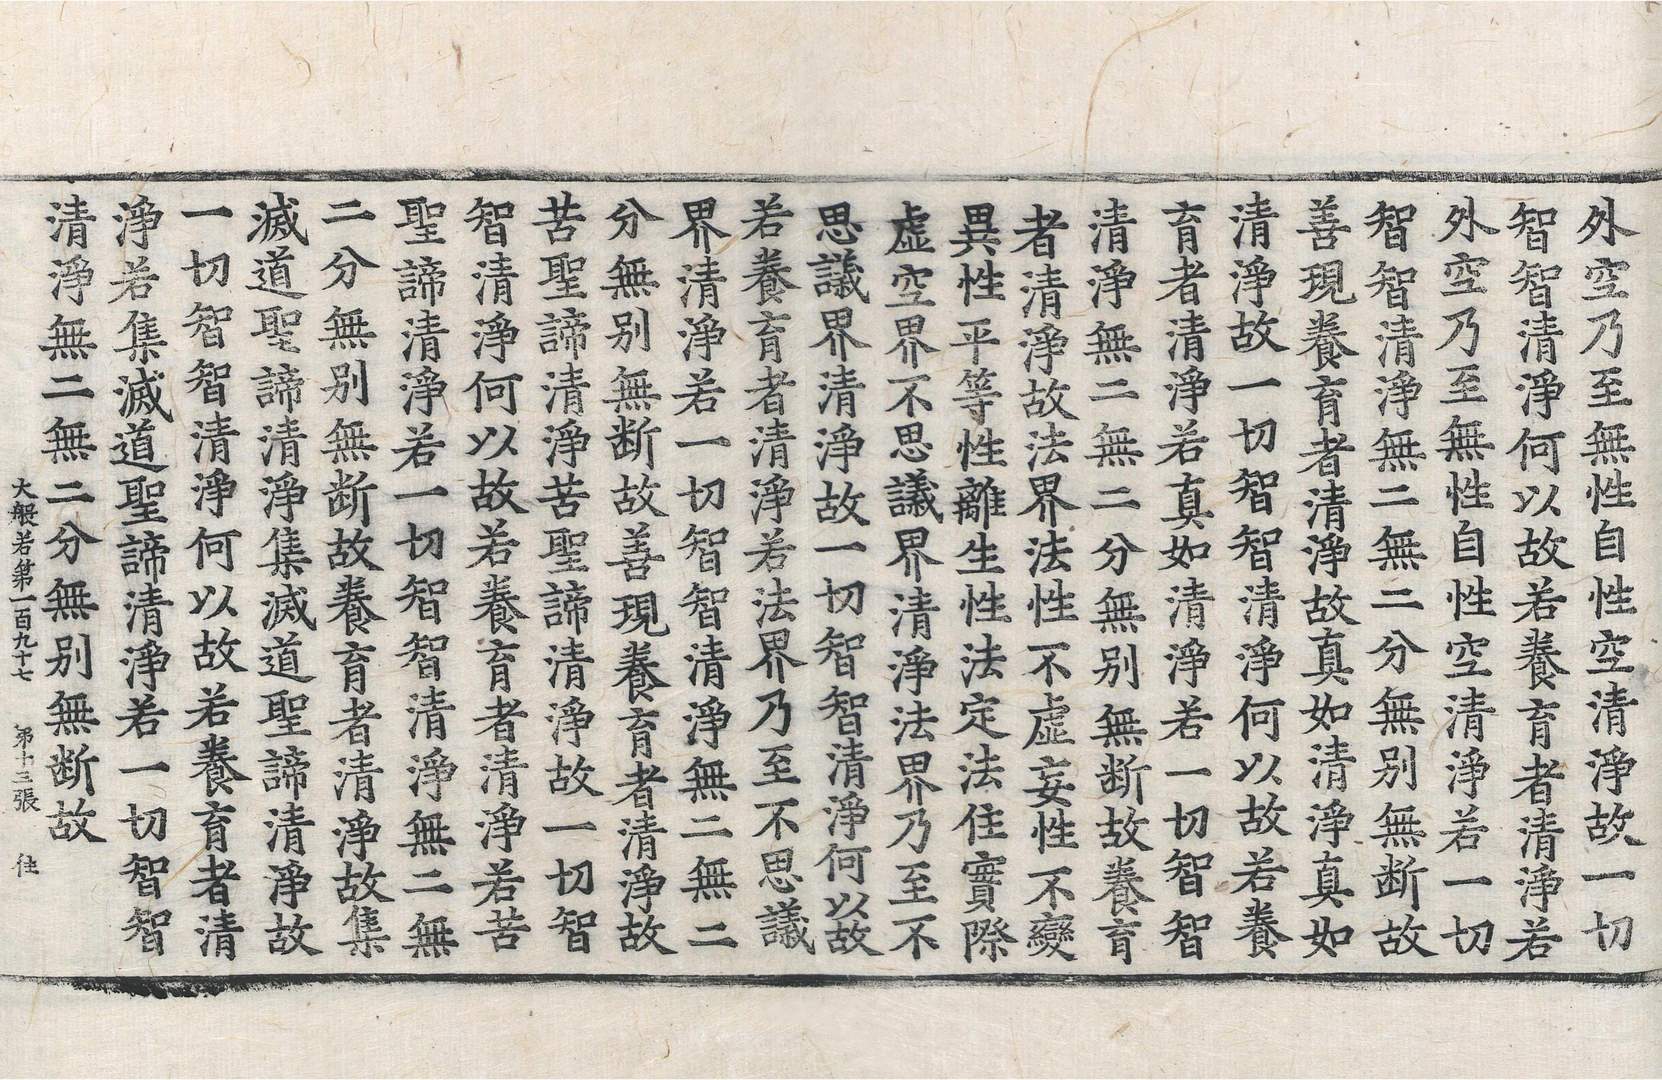 外空乃至無性自性空清淨故一切
智智清淨何以故若養育者清淨若
外空乃至無性自性空清淨若一切
智智清淨無二無二分無別無斷故
善現養育者清淨故真如清淨真如
清淨故一切智智清淨何以故若養
育者清淨若真如清淨若一切智智
清淨無二無二分無別無斷故養育
者清淨故法界法性不虛妄性不變
異性平等性離生性法定法住實際
虛空界不思議界清淨法界乃至不
思議界清淨故一切智智清淨何以故
若養育者清淨若法界乃至不思議
界清淨若一切智智清淨無二無二
分無別無斷故善現養育者清淨故
苦聖諦清淨苦聖諦清淨故一切智
智清淨何以故若養育者清淨若苦
聖諦清淨若一切智智清淨無二無
二分無別無斷故養育者清淨故集
滅道聖諦清淨集滅道聖諦清淨故
一切智智清淨何以故若養育者清
淨若集滅道聖諦清淨若一切智智
清淨無二無二分無別無斷故
大般若第一百九十七 第十三張